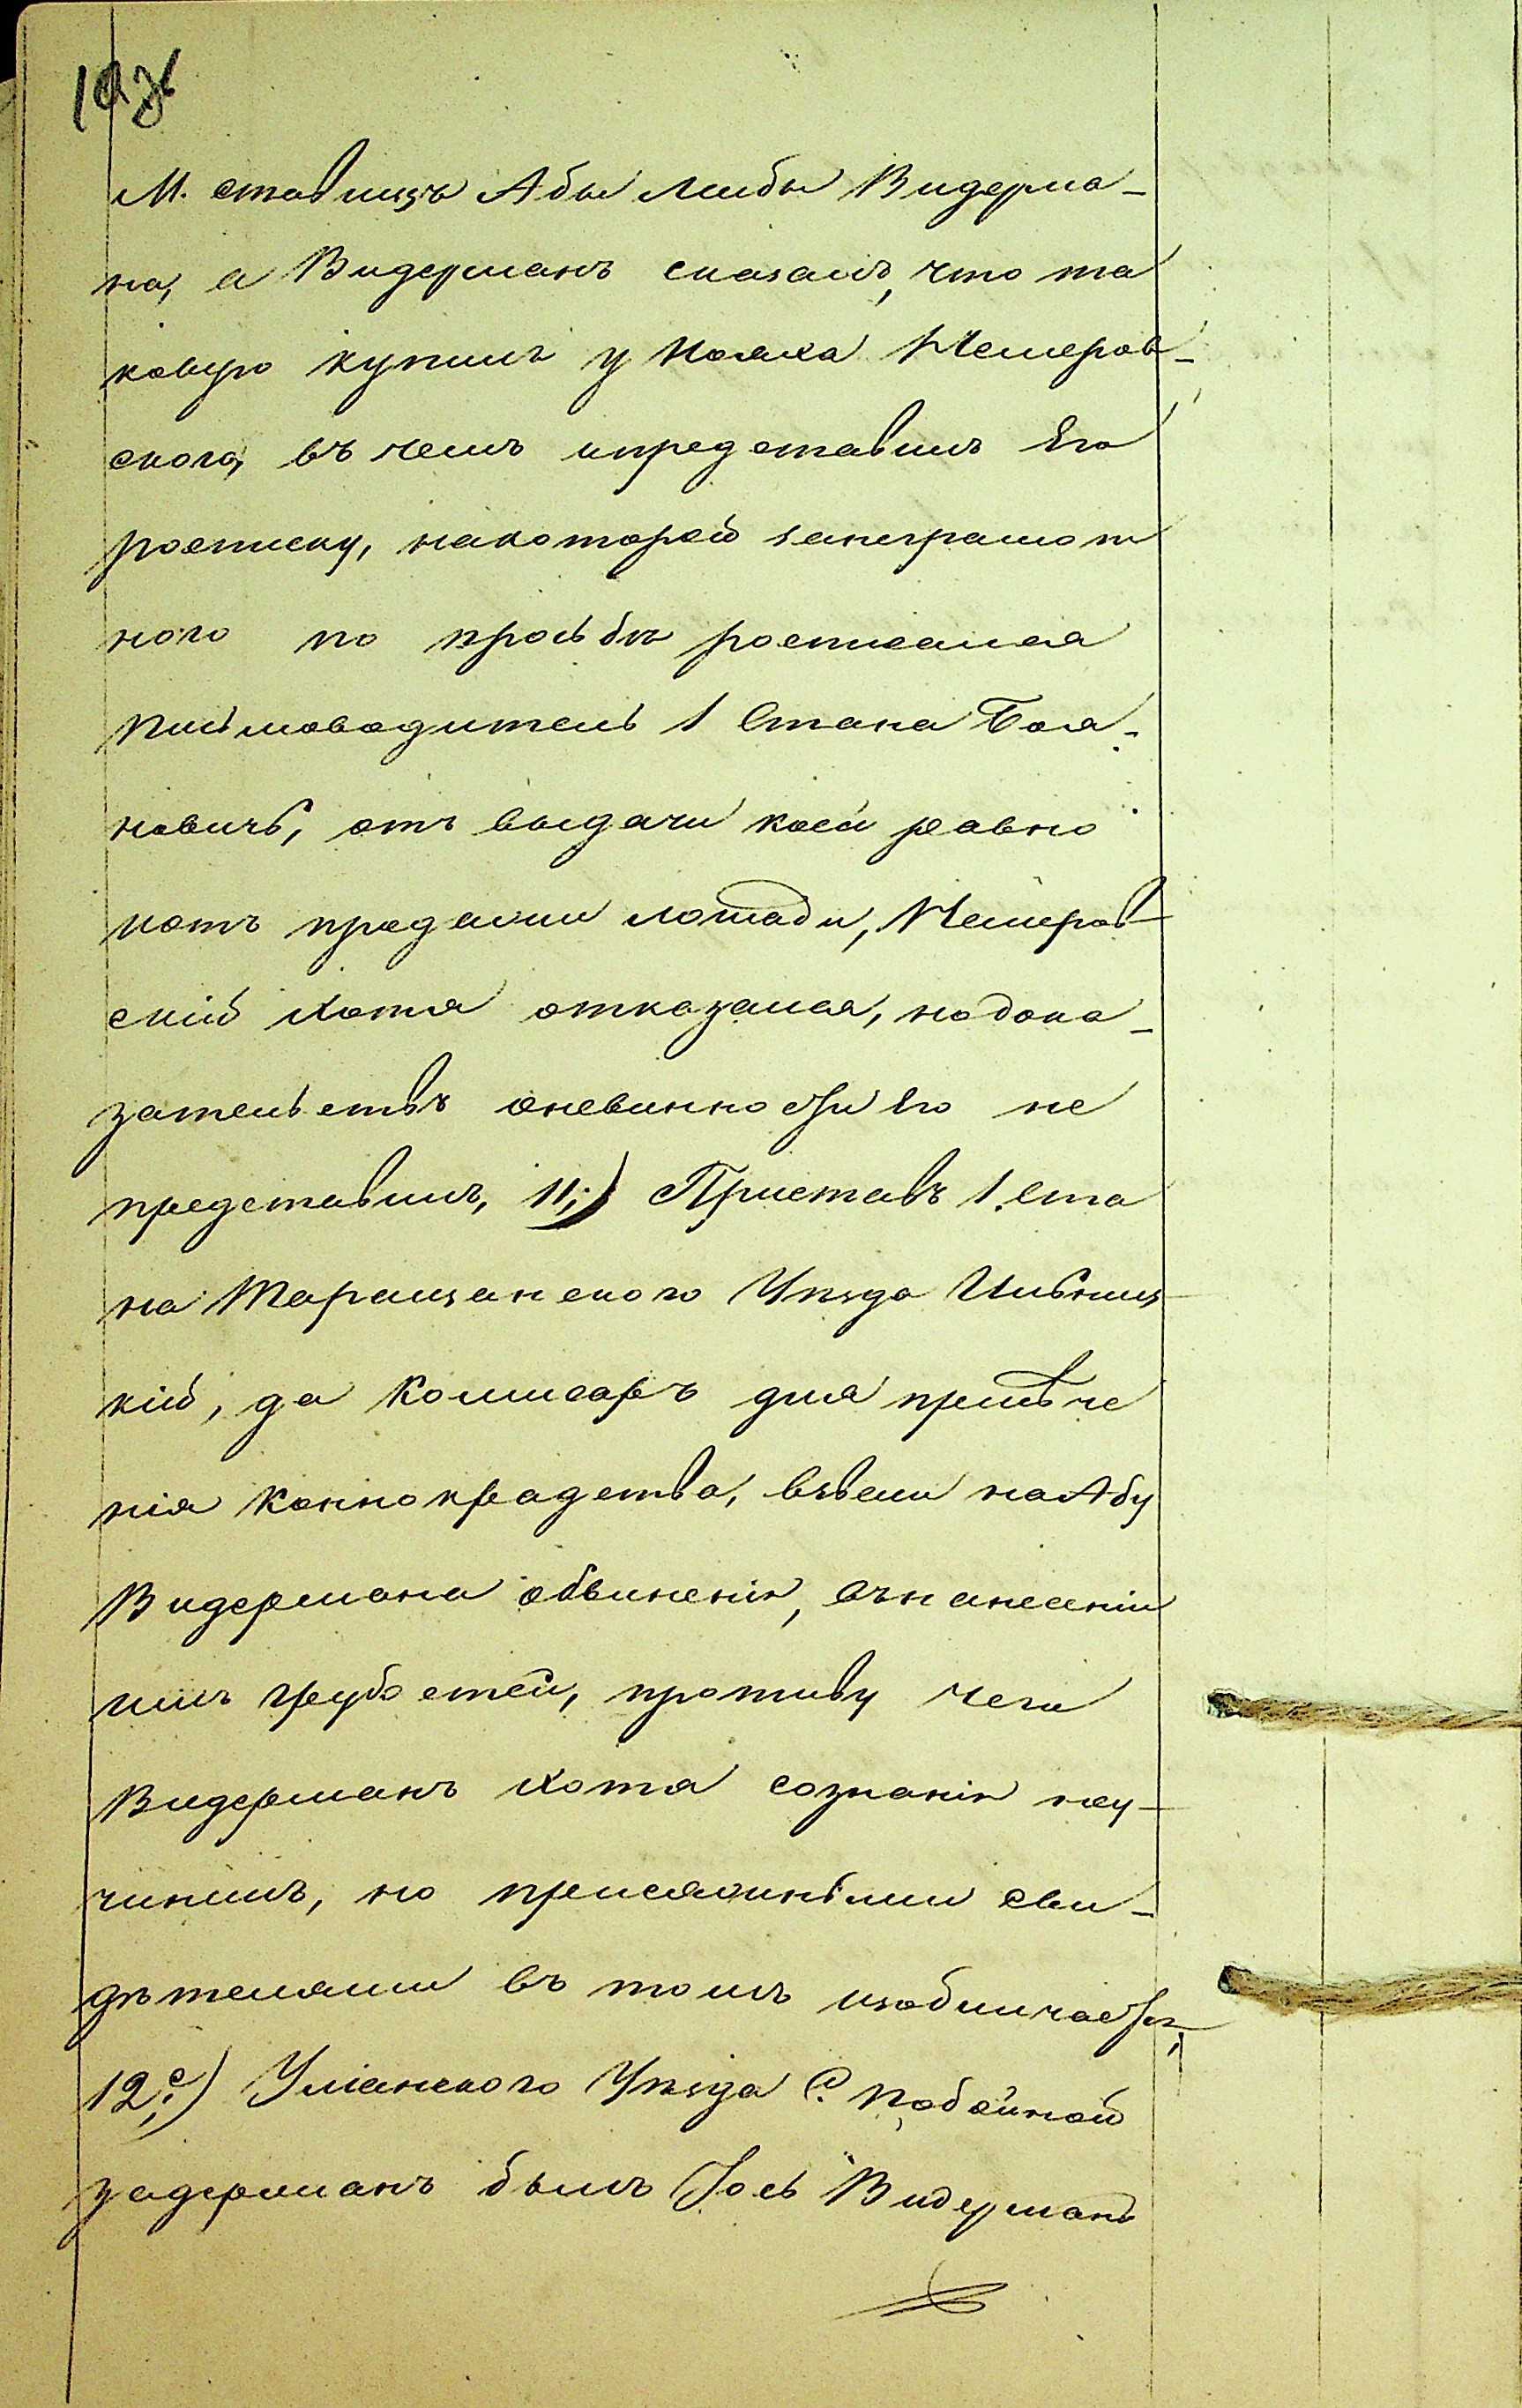 М. Ставищъ Абы Либы Видерма-
на, а Видерманъ сказалъ, что та
ковую купилъ у Поляка Немеров-
ского, въ чемъ ипредставилъ Его
росписку, накоторой занеграмот
ного по прозьбѣ росписался
Письмоводитель 1 Стана Боя-
новичъ, отъ выдачи коей равно
иотъ продажи лошади, Немеров
скій хотя отказался, но дока-
зательствъ оневинности Его не
представилъ, 11;) Приставъ 1. Ста
на Таращанского Уѣзда Ильниц
кій, да Комисаръ для пресѣче
нія Коннокрадства, взвели на Абу
Видермана обвиненія, въ нанесеніи
имъ грубостей, противу чего
Видерманъ хотя сознанія неу-
чинилъ, но присяжными сви-
дѣтелями въ томъ изобличается,
12е;) Уманского Уѣзда С. Побойной
задержанъ былъ Іось Видерманъ